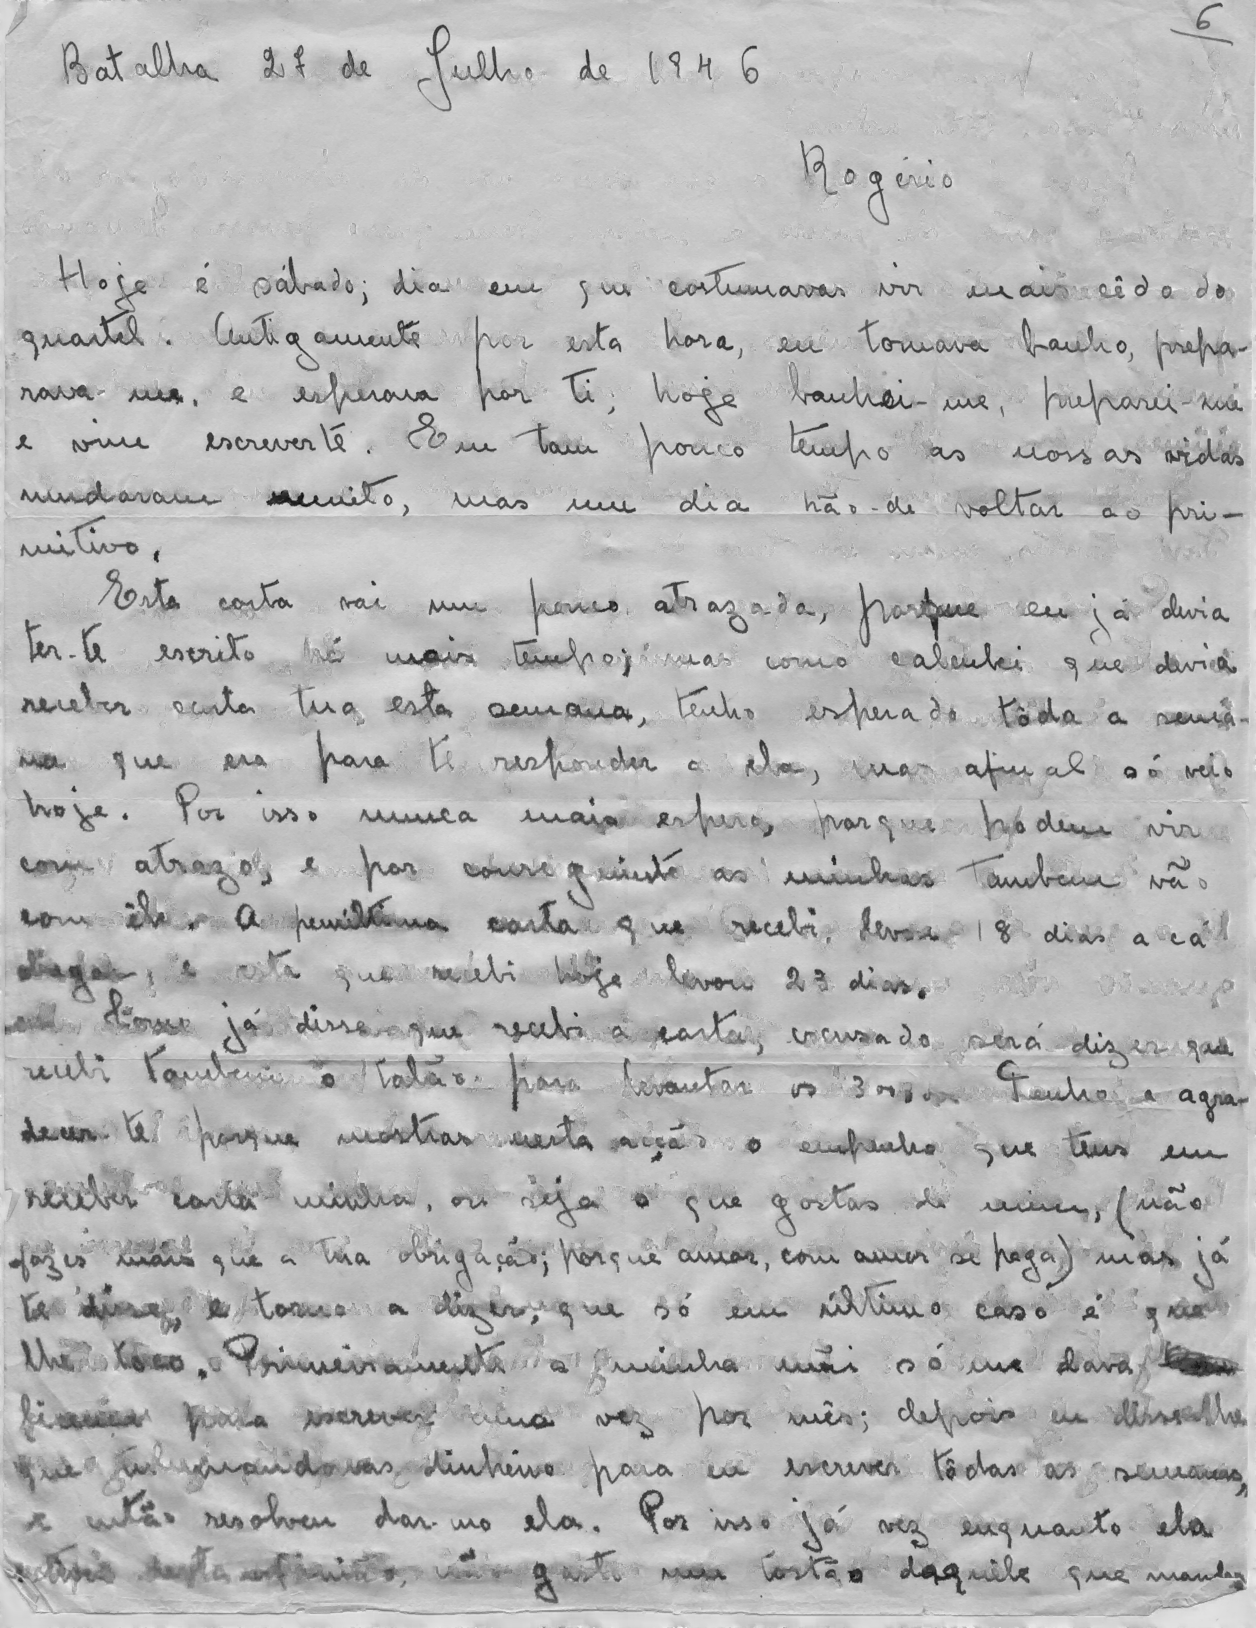 6
Batalha 27 de Julho de 1946
Rogério
Hoje é sábado; dia em que costumavas vir mais cêdo do
quartel. Antigamente por esta hora, eu tomava banho, prepa-
rava-me, e esperava por ti; hoje banhei-me, preparei-me
e vim escreverte. Em tam pouco tempo as nossas vidas
mudaram muito, mas um dia hão-de voltar ao pri-
mitivo.
Esta carta vai um pouco atrazada, porque eu já devia
ter-te escrito há mais tempo; mas como calculei que devia
receber carta tua esta semana, tenho esperado tôda a sema-
na que era para te responder a ela, mas afinal só veio
hoje. Por isso nunca mais espero, porque pódem vir
com atrazo, e por conseguinte as minhas tambem vão
com êle. A penúltima carta que recebi, levou 18 dias a cá
chegar, e esta que recebi hoje levou 23 dias.
Como já disse que recebi a carta, escusado será dizer que
recebi tambem o talão para levantar os Tenho a agra-
decer-te porque mostras nesta acção o empenho que tens em
receber carta minha, ou seja o que gostas de mim, (não
fazes mais que a tua obrigação; porque amor, com amor se paga) mas já
te disse, e torno a dizer, que só em último caso é que
lhe toco. Primeiramente a minha mãi só me dava
para escrever uma vez por mês; depois eu disse-lhe
que tu mandavas dinheiro para eu escrever tôdas as semanas,
e então resolveu dar-mo ela. Por isso já vez enquanto ela
desta opinião, não gasto um tostão daquêle que mandas